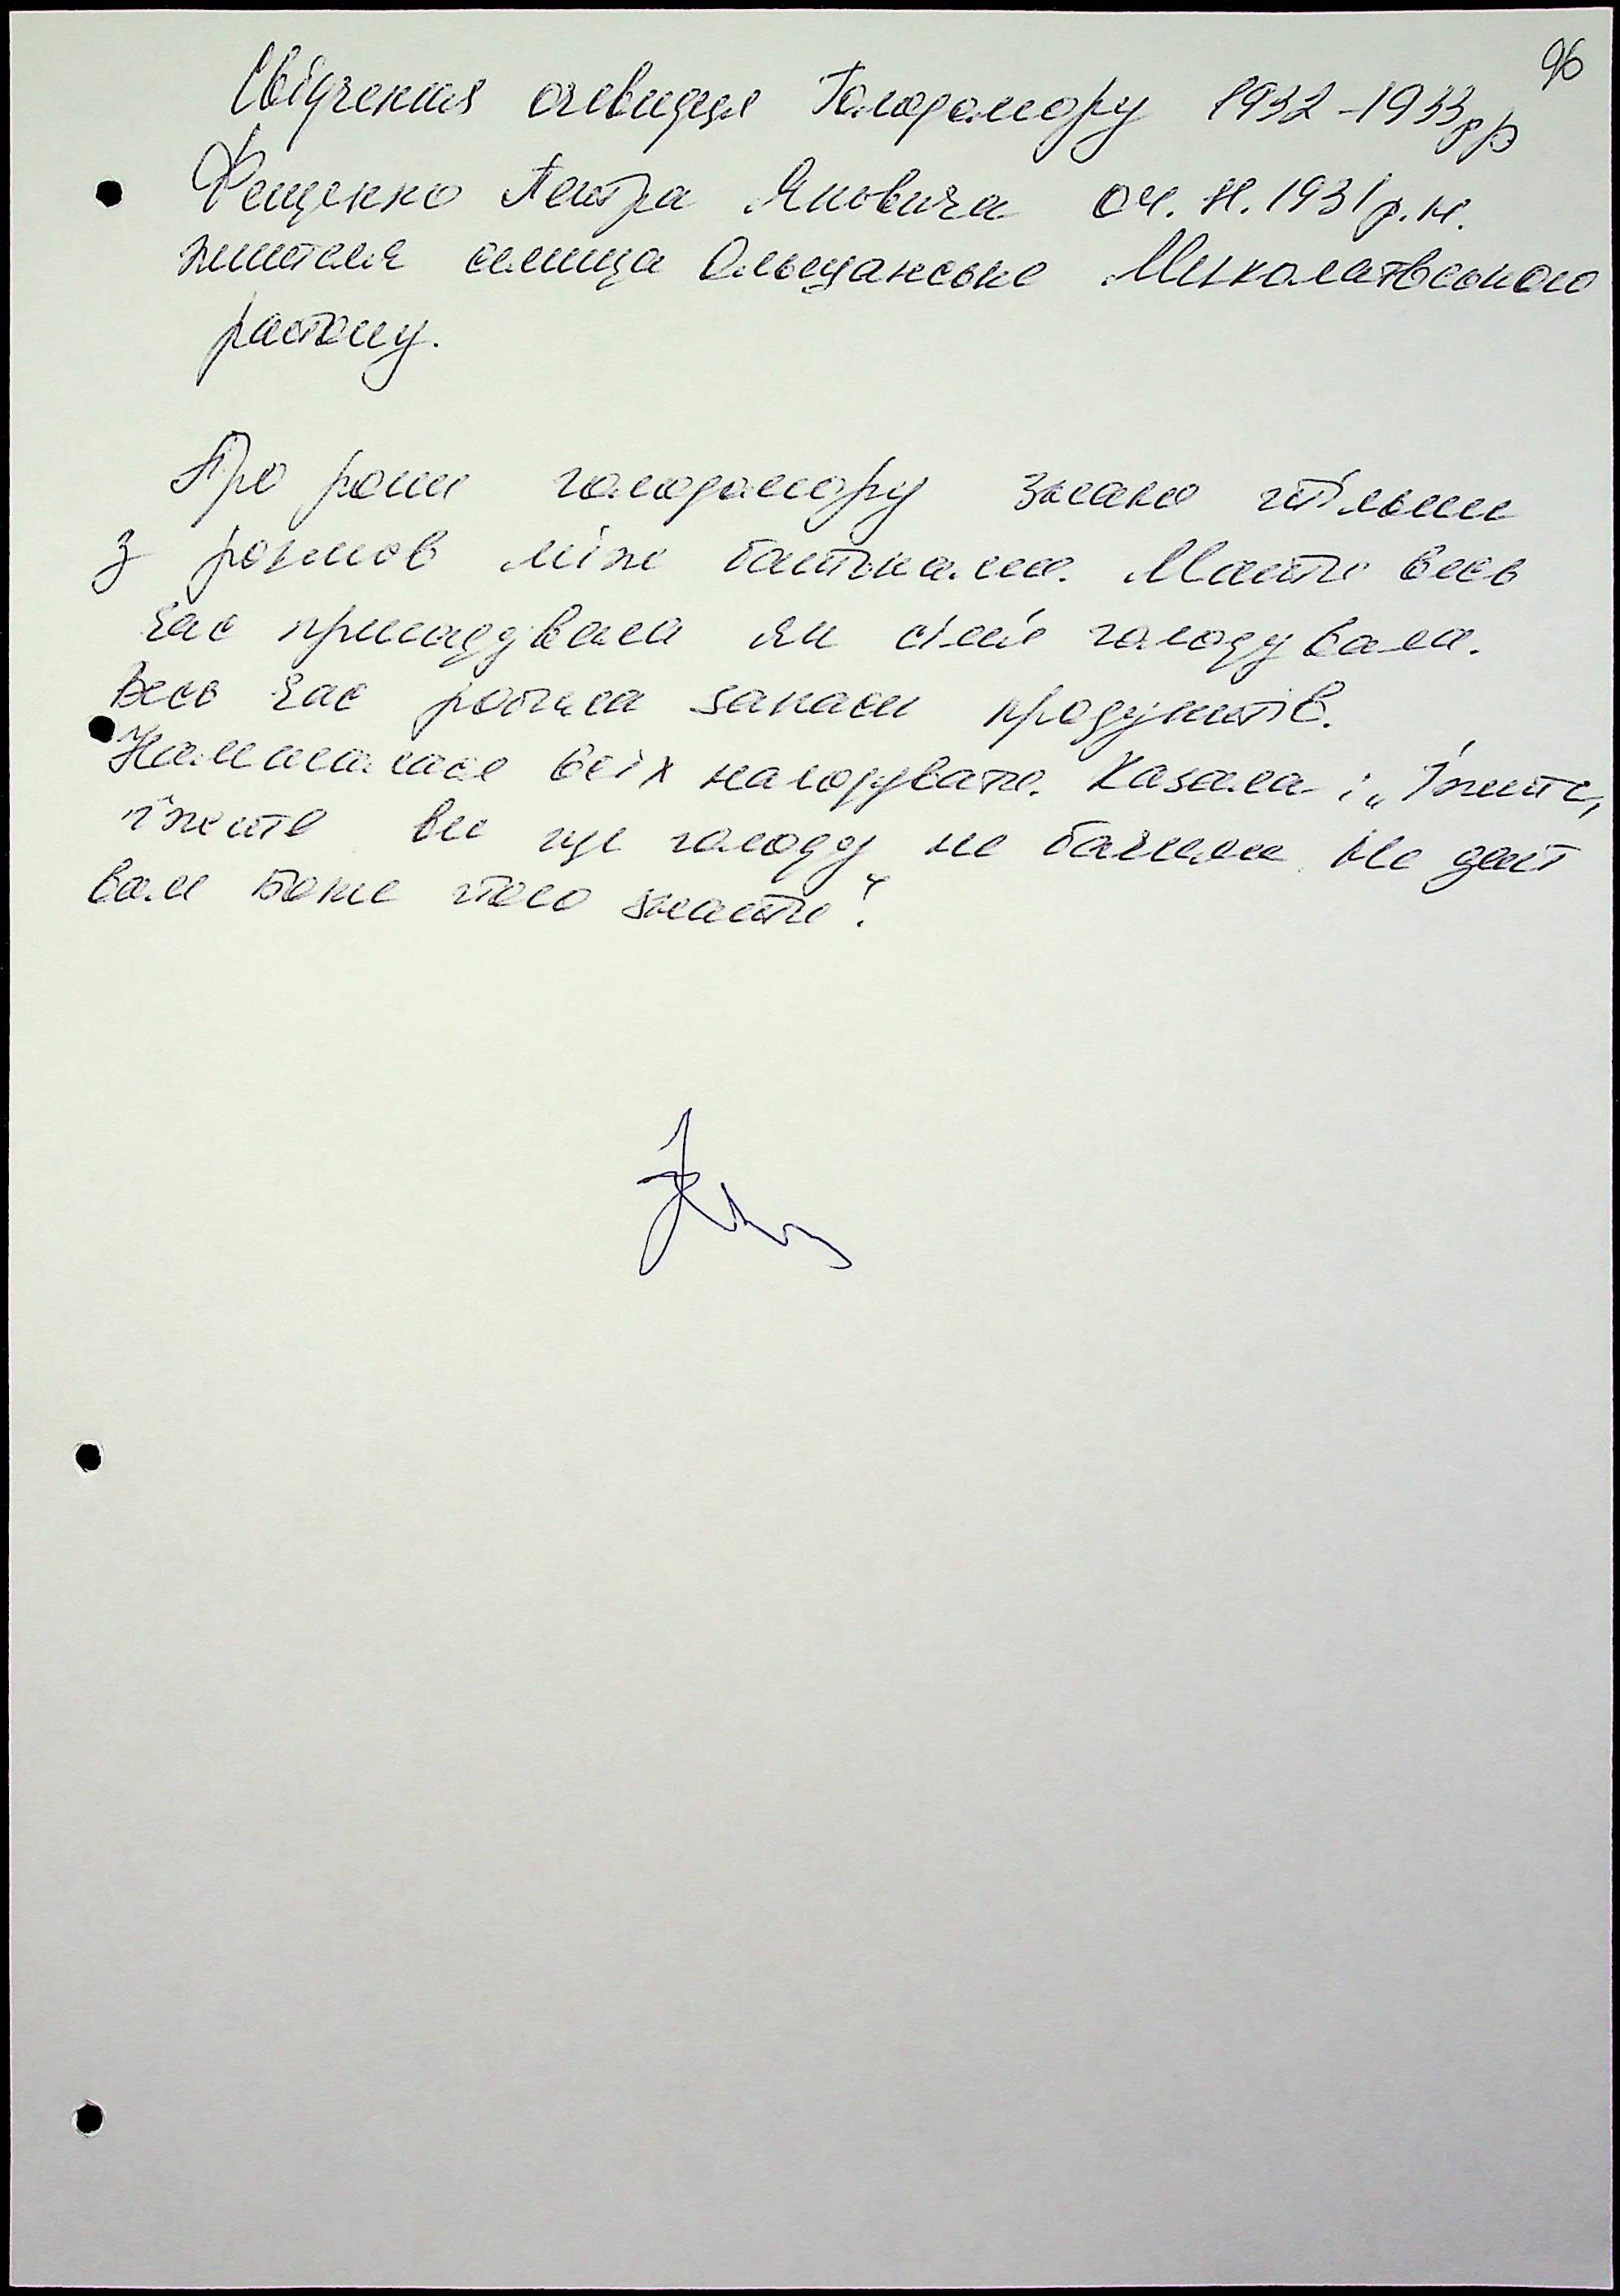 96
Свідчення очевидця Голодомору 1932-1933рр
Фещенко Петра Яковича 04. 11. 1931 р.н.
жителя селища Ольшанське Миколаївського
району.
Про роки голодомору знаю тільки
з розмов між батьками. Мати весь
час пригадувала як сім'я голодувала.
Весь час робила запаси продуктів.
Намагалася всіх нагодувати. Казала: „Їжте,
їжте ви ще голоду не бачили. Не дай
вам Боже того знати".